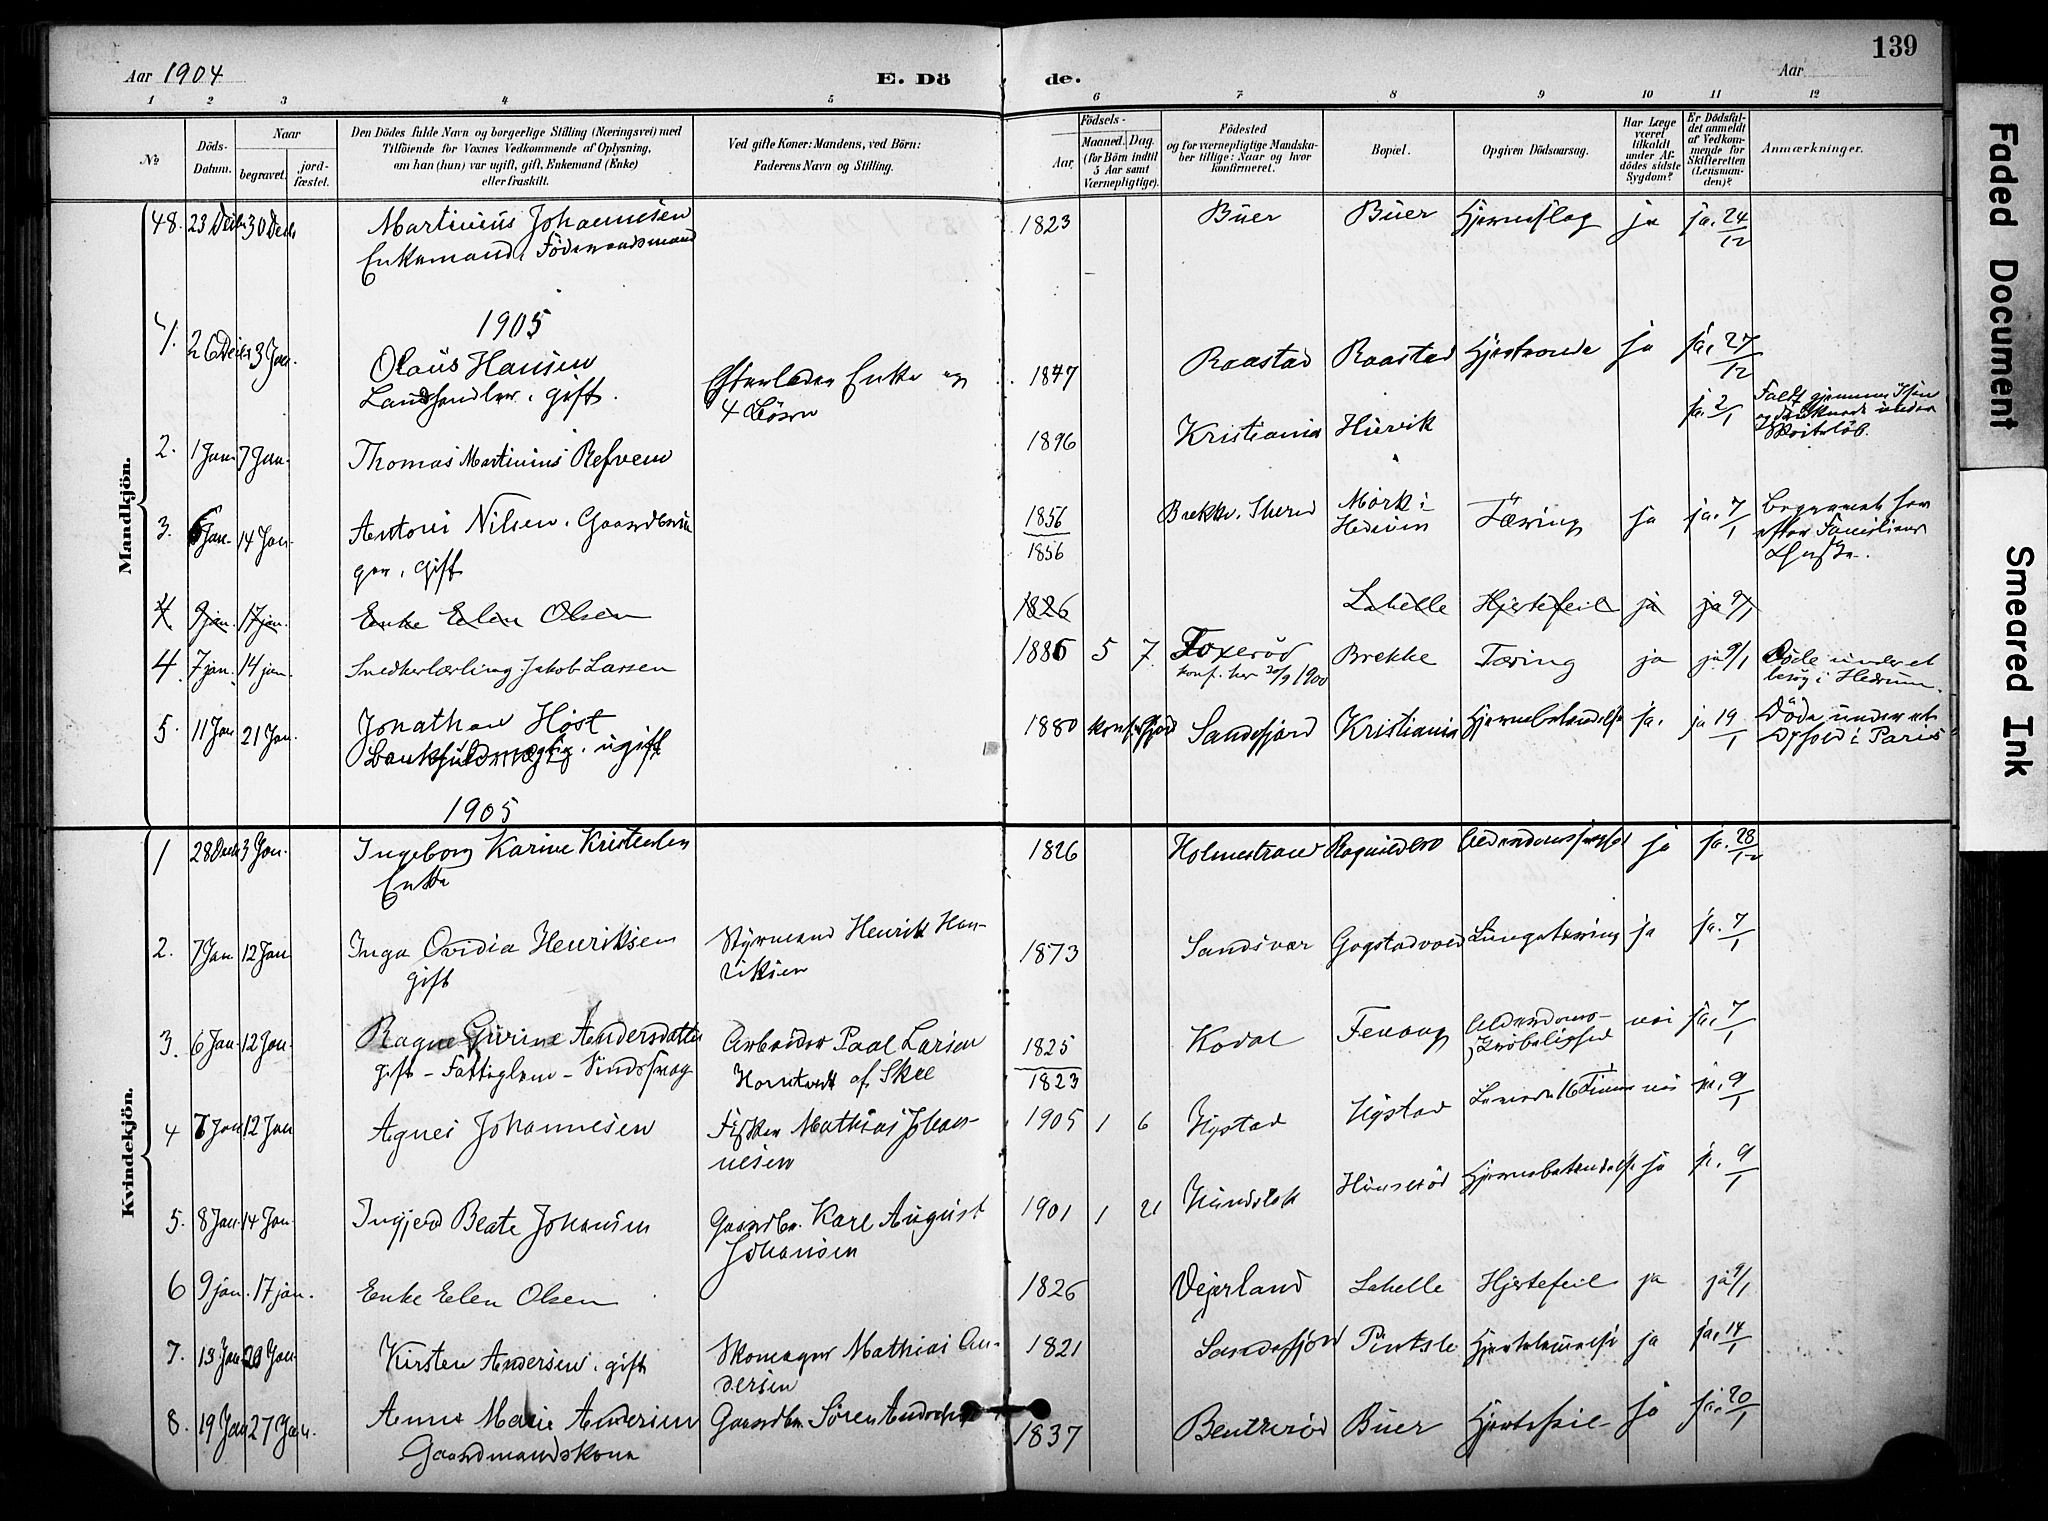 Aar 1904
E. Dö
de.
Aar
139
1 2 3 4 5 6 7 8 9 10 11 12
No
Döds-Datum.
Naar
begravet.
jord-fæstet.
Den Dödes fulde Navn og borgerlige Stilling (Næringsvei) med
Tilföiende for Voxnes Vedkommende af Oplysning,
om han (hun) var ugift, gift, Enkemand (Enke)
eller fraskilt.
Ved gifte Koner: Mandens, ved Börn:
Faderens Navn og Stilling.
Födsels-
Aar.
Maaned.
Dag.
(for Börn indtil
5 Aar samt
Værnepligtige).
Födested
og for værnepligtige Mandska-
ber tillige: Naar og hvor
konfirmeret.
Bopæl.
Opgiven Dödsaarsag.
Har Læge
været
tilkaldt
under Af-
dödes sidste
Sygdom?
Er Dödsfal-
det anmeldt
af Vedkom-
mende for
Skifteretten
(Lensman-
den)?
Anmærkninger.
Mandkjön.
48. 23 Decbr 30 Decbr Martinius Johannesen 1823 Buer Buer Hjerneslag ja ja. 24/12
Enkemand, Föderaadsmand
1905
1. 26 Decbr 3 Jan. Olaus Hansen Efterlader Enke og 1847 Raastad Raastad ja ja. 27/12
Landhandler. gift. 4 Börn
2. 1 Jan. 7 Jan. Thomas Martinius Refvem 1896 Kristiania Hüvik ja. 2/1 Faldt gjennem Isen
og druknede under
Skøiteløb.
3. 6 Jan. 14 Jan. Antoni Nilsen. Gaardbru- 1856 Brekke. Mørk i Tæring ja ja. 7/1 Begravet her
ger, gift 1856 Hedrum efter Familiens
Ønske.
4 9 jan. 17 jan. Enke Elen Olsen 1826 Lahelle Hjertefeil ja ja 9/1
4. 7 jan. 14 jan. Snedkerlærling Jakob Larsen 1886 5 7 Foxerød Brekke Tæring ja ja 9/1 Döde under et
konf. her 30/9 1900 besøg i Hedrum.
5. 11 Jan 21 Jan. Jonathan Høst 1880 Sandefjord Kristiania Hjernebetændelse ja. ja 19/1 Döde under et
Bankfuldmægtig. ugift Ophold i Paris
1905
Kvindekjön.
1 28 Decbr 3 Jan. Ingeborg Karine Kristensen 1826 Holmestrand ja ja. 28/12
Enke
2. 7 Jan 12 Jan Inga Ovidia Henriksen Styrmand Henrik Hen- 1873 Sandsvær Gogstadvold Lungetæring ja ja. 7/1
gift riksen
3. 6 Jan 12 Jan. Andersdatter Arbeider Paal Larsen 1825 Kodal Fevang Alderdoms- nei ja. 7/1
gift – Fattiglem – Sindssvag af Skee 1823 skrøbelighed
4 7 Jan 12 Jan Agnes Johannesen Fisker Mathias Johan- 1905 1 6 Nystad Nystad Levede 16 Timer nei ja. 9/1
nesen
5. 8 Jan. 14 Jan. Ingjerd Beate Johansen Gaardbr. Karl August 1901 1 21 Hjernebetændelse ja ja. 9/1
Johansen
6 9 jan. 17 jan. Enke Elen Olsen 1826 Vejerland Lahelle Hjertefeil ja ja 9/1
7. 13 Jan 20 Jan. Kirsten Andersen. gift Skomager Mathias An- 1821 Sandefjord Pindsle Hjertelammelse ja ja. 14/1
dersen
8. 19 Jan 27 Jan. Anne Marie Andersen Gaardbr. Søren Andersen 1837 Bentserød Buer Hjertefeil ja ja. 20/1
Gaardmandskone
Faded Document
Smeared Ink